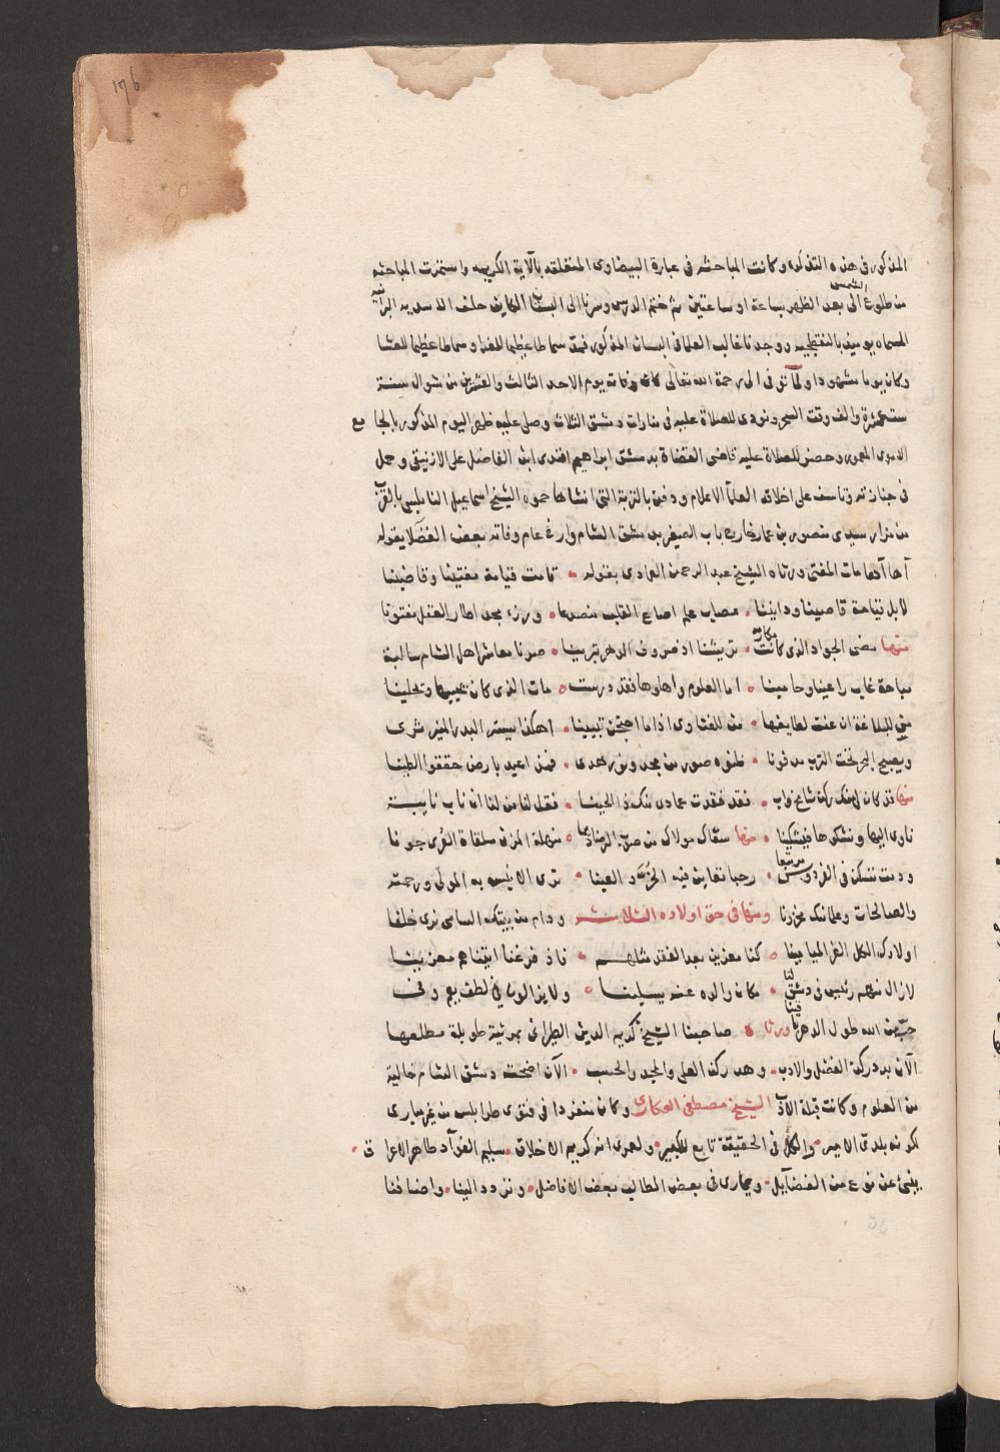 176
المذكور فى هذه التذكرة وكانت المباحثه فى عبارة البيضاوى المتعلقة بالآية الكريمه واستمرت المباحثه
من طلوع الشمس الى بعد الظهر بساعة او ساعتين ثم ختم الدرس وسرنا الى البستان الكاين خلف
المسماه يوميذ ووجدنا غالب العلما فى البستان المذكور فمد سماطا عظيما للغدا وسماطا عظيما للعشا
وكان يوما مشهودا ولما توفى الى رحمة الله تعالى كانت وفاته يوم الاحد الثالث والعشرين من شوال سنة
ست عشرة والف وقت السحر ونودى للصلاة عليه فى منارات دمشق الثلاث وصلى عليه ظهر اليوم المذكور بالجامع
الاموى المعمور وحضر للصلاة عليه قاضى القضاة بدمشق ابراهيم افندى ابن الفاضل على الازنيقى وحمل
فى جنازته وتاسف على اخلاقه العلمآ الاعلام ودفن بالتربة التى انشاها حموه الشيخ اسماعيل النابلسى بالقرب
من مزار سيدى منصور بن عمار خارج باب الصغير بدمشق الشام وارخ عام وفاته بعض الفضلا بقوله
آها آها مات المفتى ورثاه الشيخ عبد الرحمن العمادى بقوله • قامت قيامة مفتينا وقاضينا
لا بل قيامة قاصينا ودانينا • مصاب علم اضاع القلب منصدعا • ورزء مجد اطار العقل مفتونا
منها مضى الجواد الذى كانت مكارمه • تريشنا اذ صروف الدهر تبرينا • صرنا معاشر اهل الشام سالبة
مباحة غاب راعينا وحامينا • اما العلوم واهلوها فقد درست • مات الذى كان يحييها وتحلينا
من للبلاغة ان عنت لطايفها • من للفتاوى اذا ما احتجن تبيينا • اهكذا يستر البدر المنير ثرى
ويصبح البحر تحت الترب مدفونا • فمن اعيد بارض حققوا الطينا
منها قد كان لى منك ركن شامخ • فقد فقدت عمادى منك ذا الحينا • فقل لنا من لنا ان ناب نايبة
ناوى اليها ونشكوها فيشكينا • منها سقاك مولاك من صوب الرضا • منهلة المزن ملقاة العرى جونا
ودمت تسكن فى الفردوس مرتبعا • رحبا تعاين فيه الحور والعينا • ترى الانيس به المولى ورحمته
والصالحات وعلما كنت مخزونا ومنها فى حق اولاده الثلاثة ودام من بيتك السامى نرى خلفا
اولادك الكل الغر الميامينا • كنا معزين بعد الفقد مثلهم • فاذ فرغنا اتيناهم معزينا
لازال منهم رئيس فى دمشق لنا • مكان والده عنه يسلينا • ولا يزالون فى لطف وفى
الله طول الدهر ورثاه • صاحبنا الشيخ كريم الدين الطارانى بمرثية طويلة مطلعها
الآن بدد ركن الفضل والادب • وهد ركن العلى والمجد والحسب • الآن اضحت دمشق الشام خالية
من العلوم وكانت قبلة الادب الشيخ مصطفى العكارى وكان منفردا فى فتوى طرابلس من غير مبارى
لكونه بلدى الامير • والكل فى الحقيقة تابع للكبير • ولعمرى انه كريم الاخلاق • سليم الفؤآد طاهر الاعراق •
ينبئ عن نوع من الفضآيل • ويمارى فى بعض المطالب بعض الافاضل • وتردد الينا • واضافنا